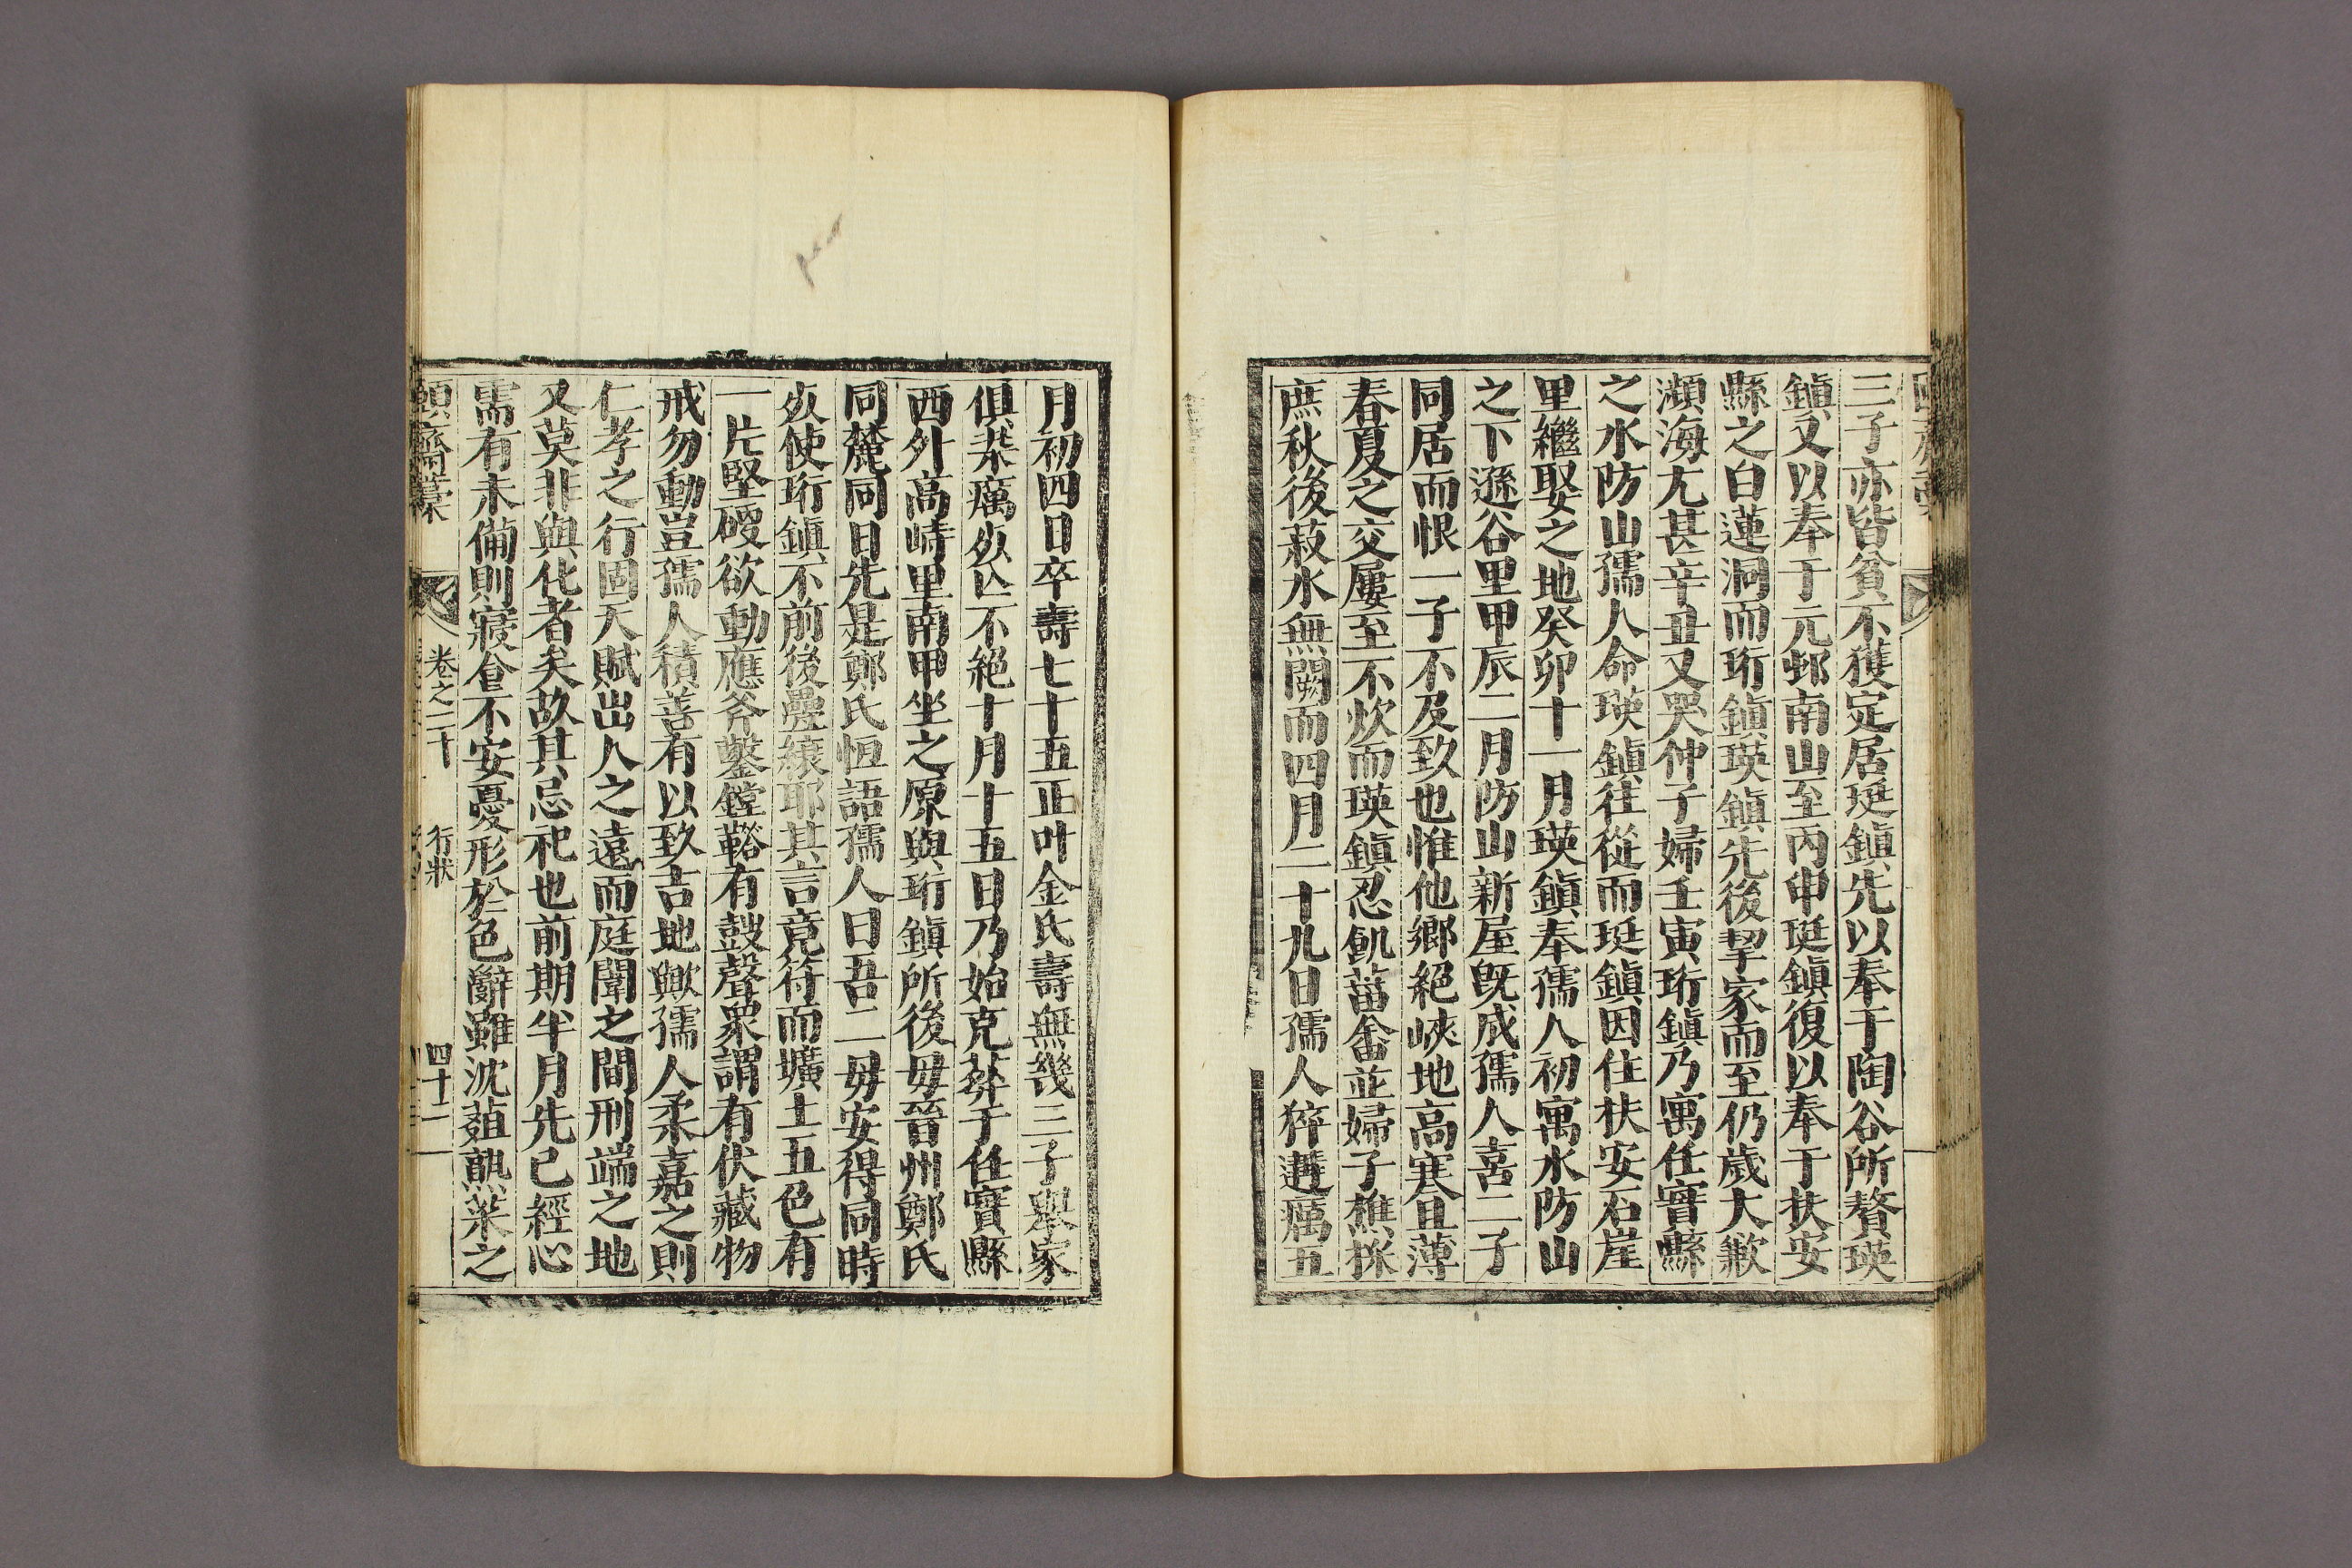 三子亦皆貧不獲定居珽鎭先以奉于陶谷所贅瑛
鎭又以奉于元邨南山至丙申珽鎭復以奉于扶安
縣之白蓮洞而珩鎭瑛鎭先後挈家而至仍歲大歉
瀕海尤甚辛丑又哭仲子婦壬寅珩鎭乃寓任實縣
之水防山孺人命瑛鎭往從而珽鎭因住扶安石崖
里繼娶之地癸卯十一月瑛鎭奉孺人初寓水防山
之下遜谷里甲辰二月防山新屋旣成孺人喜二子
同居而恨一子不及致也惟他鄕絕峽地高寒且薄
春夏之交屢至不炊而瑛鎭忍飢菑畬並婦子樵採
庶秋後菽水無闕而四月二十九日孺人猝遘癘五
月初四日卒壽七十五正叶金氏壽無幾三子舉家
俱染癘死亡不絕十月十五日乃始克葬于任實縣
西外高峙里南甲坐之原與珩鎭所後母晉州鄭氏
同麓同日先是鄭氏恒語孺人曰吾二母安得同時
死使珩鎭不前後疊縗耶其言竟符而壙土五色有
一片堅磤欲動應斧鑿鏜鞳有鼓聲衆謂有伏藏物
戒勿動豈孺人積善有以致吉地歟孺人柔嘉之則
仁孝之行固天賦出人之遠而庭闈之間刑端之地
又莫非與化者矣故其忌祀也前期半月先已經心
需有未備則寢食不安憂形於色辭雖沈葅熟菜之
頤齋藁
卷之二十
行狀
四十二